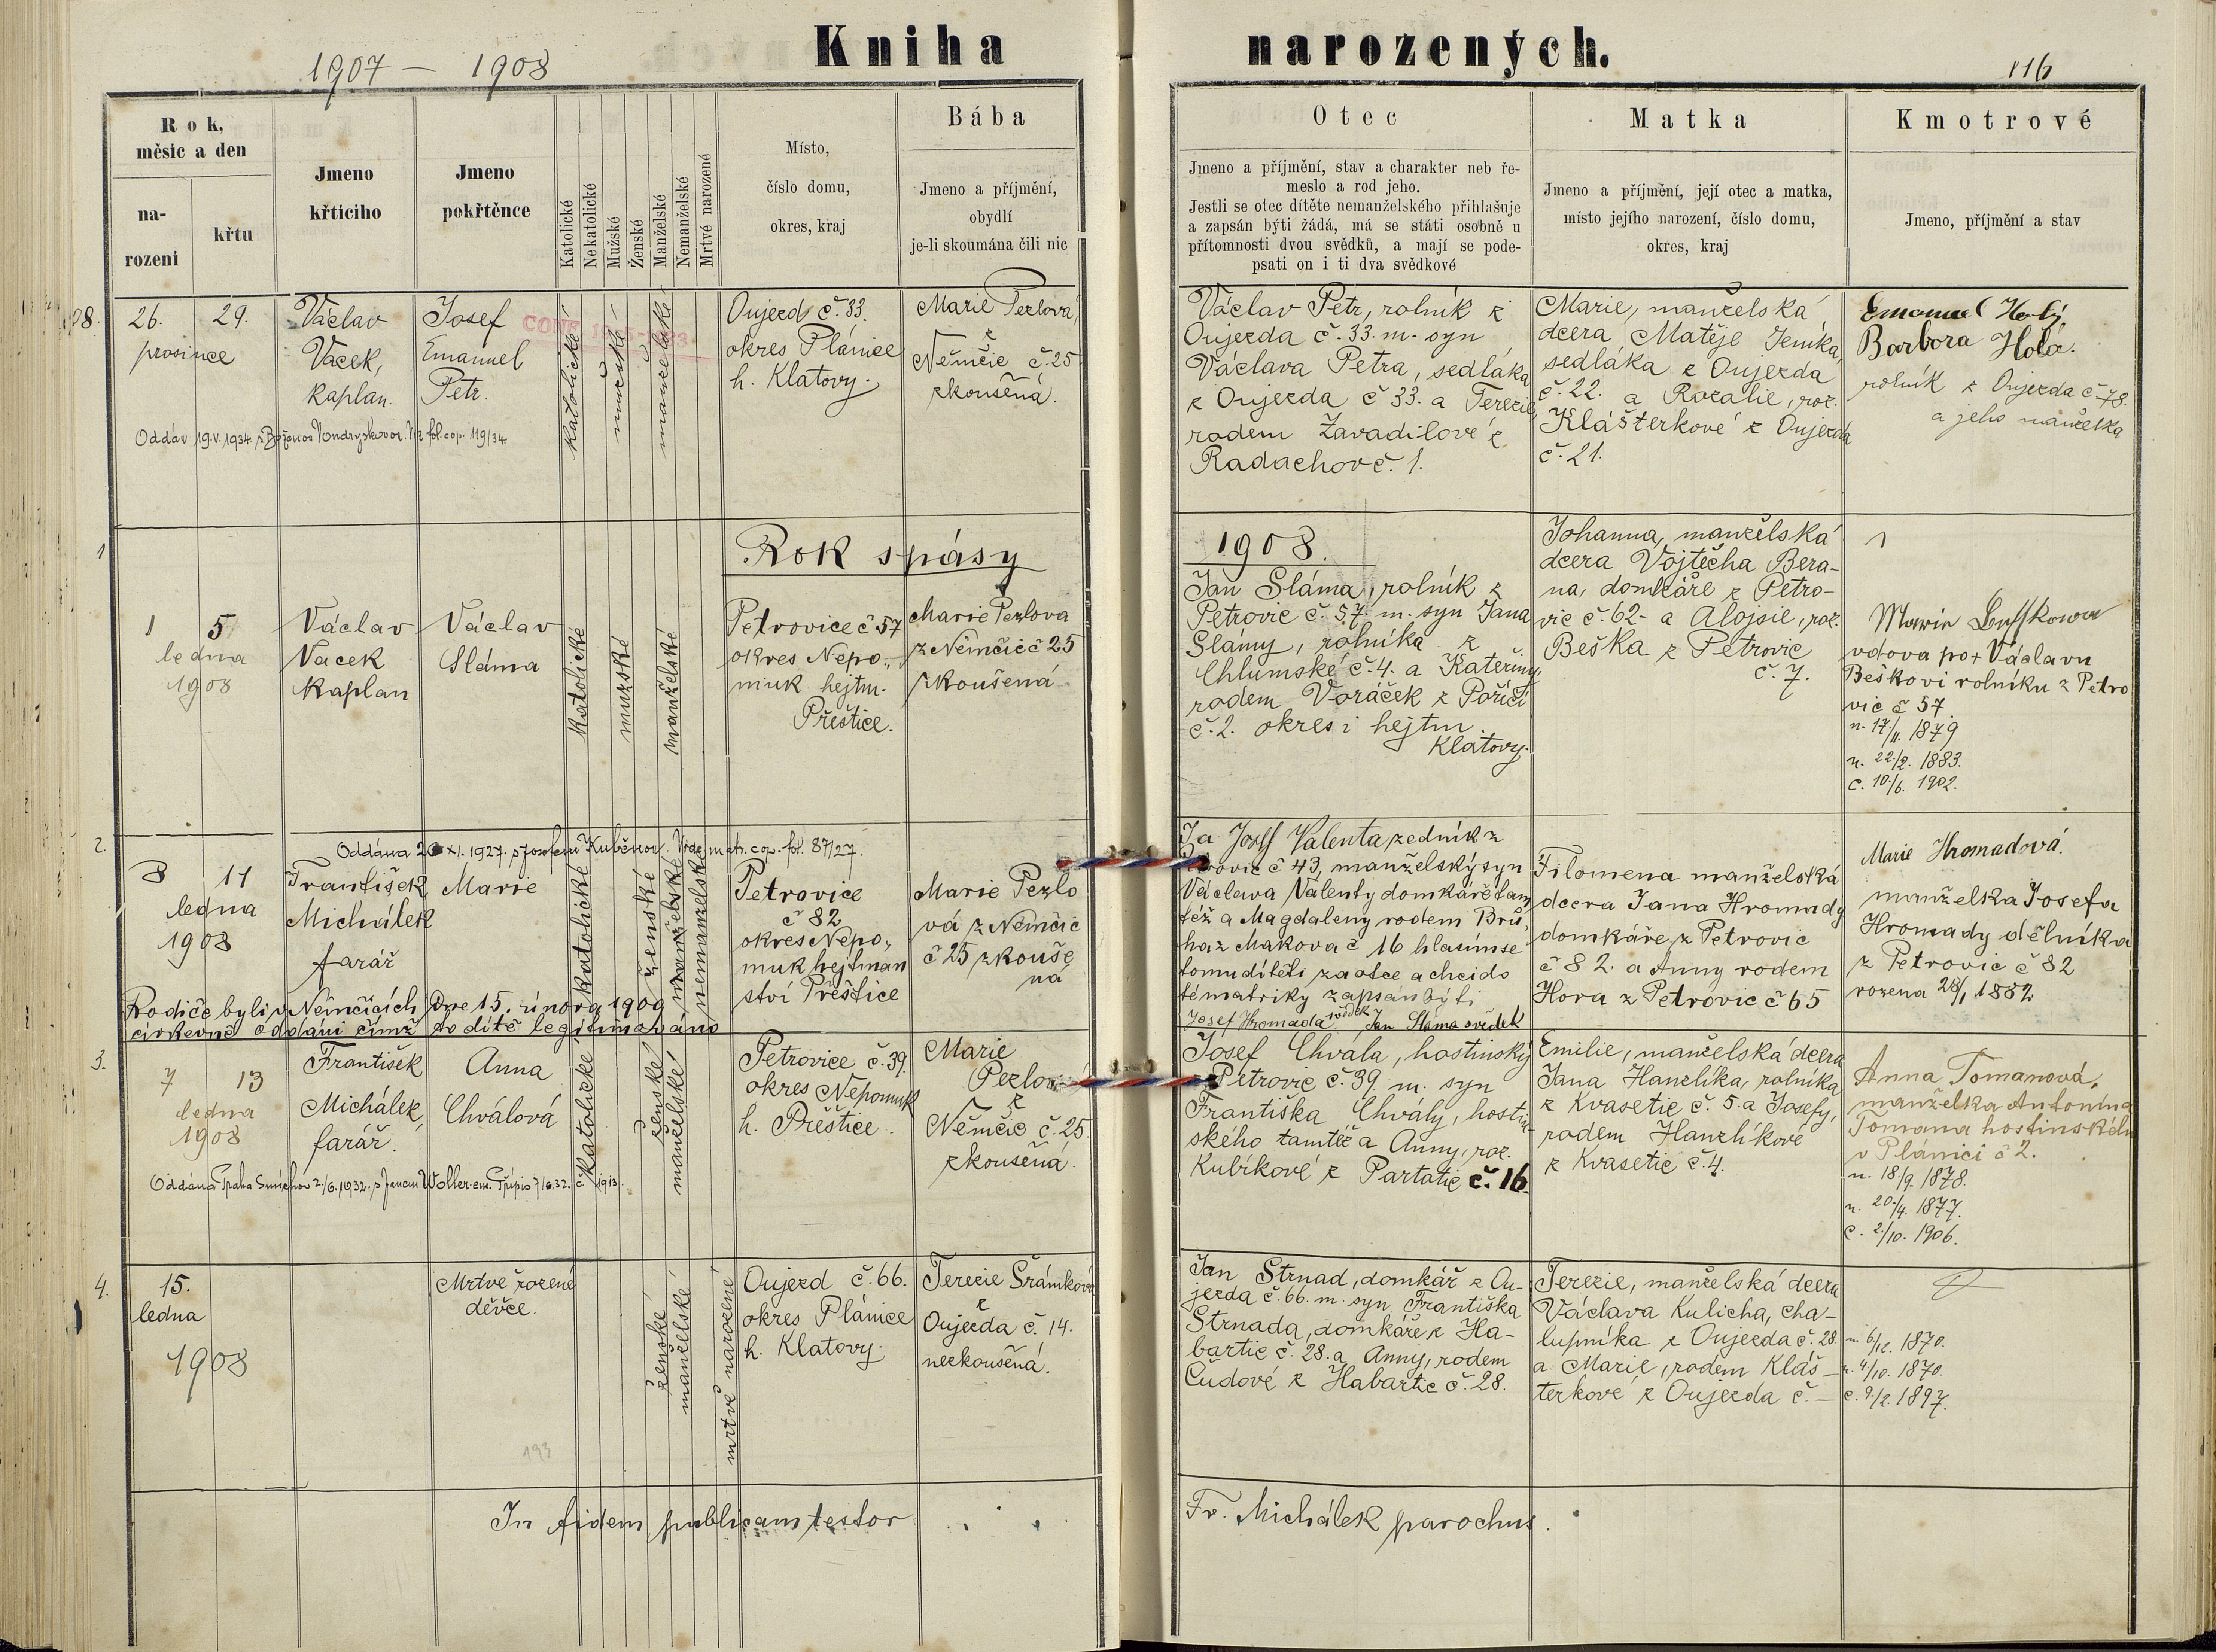 1907 — 1908
Kniha narozených.
116
Rok, měsíc a den
na-
rozeni
křtu
Jmeno
křticiho
Jmeno
pokřtěnce
Katolické
Nekatolické
Mužské
Ženské
Manželské
Nemanželské
Mrtvé narozené
Místo,
číslo domu,
okres, kraj
Bába
Jmeno a příjmění,
obydlí
je-li skoumána čili nic
Otec
Jmeno a příjmění, stav a charakter neb ře-
meslo a rod jeho.
Jestli se otec dítěte nemanželského přihlašuje
a zapsán býti žádá, má se státi osobně u
přítomnosti dvou svědků, a mají se pode-
psati on i ti dva svědkové
Matka
Jmeno a příjmění, její otec a matka,
místo jejího narození, číslo domu,
okres, kraj
Kmotrové
Jmeno, příjmění a stav
26. 29.
prosince
Václav
Vacek,
kaplan.
Josef
Emanuel
Petr.
katolické
mužské
manželské
Oujezd č. 33.
okres Plánice
h. Klatovy.
Marie Pezlová,
z
Němčic č. 25
zkoušená.
Oddáv 19.V.1934 s Boženou
fol. cop. 119/34
Václav Petr, rolník z
Oujezda č. 33. m. syn
Václava Petra, sedláka
z Oujezda č 33. a Terezie,
rodem Zavadilové z
Radachov č. 1.
Marie, manželská
dcera Matěje Jeníka,
sedláka z Oujezda
č. 22. a Rozalie, roz.
Klášterkové z Oujezda
č. 21.
Emanuel Holý
Barbora Holá.
rolník z Oujezda č 78.
a jeho manželka
1
Rok spásy 1908.
1 5
ledna
1908
Václav
Vacek
kaplan
Václav
Sláma
katolické
mužské
manželské
Petrovice č 57
okres Nepo-
muk hejtm.
Přeštice.
Marie Pezlova
z Němčic č 25
zkoušená
Jan Sláma, rolník z
Petrovic č. 57. m. syn Jana
Slámy, rolníka z
Chlumské č. 4. a Kateřiny,
rodem Voráček z Poříčí
č. 2. okres i hejtm.
Klatovy.
Johanna, manželská
dcera Vojtěcha Bera-
na, domkáře z Petro-
vic č. 62- a Alojsie, roz.
Beška z Petrovic
č. 7.
Marie
vdova po + Václavu
Beškovi rolníku z Petro
vic č 57.
n. 17/11. 1879
n. 22/2. 1883.
c. 10/6. 1902.
2.
Oddána XI. 1927. s Josefem matr. cop. fol. 87/27.
8 11
ledna
1908
František
Michálek
farář
Marie
katolické
ženské
manželské
nemanželské
Petrovice
č 82
okres Nepo-
muk hejtman
ství Přeštice
Marie Pezlo
vá z Němčic
č 25 zkouše
ná
Rodiče byli v Němčicích dne 15. února 1909
církevně oddáni čímž to dítě legitimováno
Ja Josef Valenta zedník z
Petrovic č 43, manželský syn
Václava Valenty domkáře tam
též a Magdaleny rodem Brů
ha z Makova č 16 hlasím se
tomu dítěti za otce a chci do
této matriky zapsán býti
Josef Hromada svědek Jan Sláma svědek
Filomena manželská
dcera Jana Hromady
domkáře z Petrovic
č 82. a Anny rodem
Hora z Petrovic č 65
Marie Hromadová.
manželka Josefa
Hromady dělníka
z Petrovic č 82
rozena 28/1 1882
3.
7 13
ledna
1908
František
Michálek,
farář.
Anna
Chválová
katolické
ženské
manželské
Petrovice č. 39.
okres Nepomuk
h. Přeštice.
Marie
Pezlová
z
Němčic č. 25.
zkoušená.
Oddána Praha Smíchov 2/6. 1932. s Janem
Josef Chvála, hostinský
z Petrovic č. 39. m. syn
Františka Chvály, hostin-
ského tamtéž a Anny, roz.
Kubíkové z Partatic č. 16.
Emilie, manželská dcera
Jana Hanzlíka, rolníka
z Kvasetic č. 5. a Josefy,
rodem Hanzlíkové
z Kvasetic č. 4.
Anna Tomanová,
manželka Antonína
Tomana hostinského
v Plánici č 2.
n. 18/9. 1878.
n. 20/4. 1877.
c. 2/10. 1906.
4.
15.
ledna
1908
Mrtvě rozené
děvče.
ženské
manželské
mrtvě narozené
Oujezd č. 66.
okres Plánice
h. Klatovy.
Terezie Šrámková
z
Oujezda č. 14.
nezkoušená.
Jan Strnad, domkář z Ou-
jezda č. 66. m. syn Františka
Strnada, domkáře z Ha-
bartic č. 28. a Anny, rodem
Čudové z Habartic č. 28.
Terezie, manželská dcera
Václava Kulicha, cha-
lupníka z Oujezda č. 28.
a Marie, rodem Kláš-
terkove z Oujezda č. —
n. 6/12. 1870.
n. 4/10. 1870.
c. 9/2. 1897.
193
In fidem publicam testor
Fr. Michálek parochus.